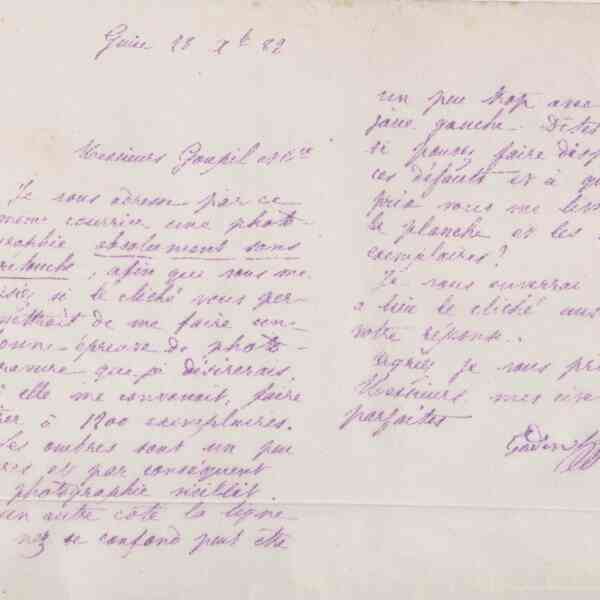 Guise 28 Xbre 82
Messieurs Goupil et Cie
Je vous adresse par ce
même courrier une photo-
graphie absolument sans
retouche, afin que vous me
disiez si le cliché vous per-
mettrait de me faire une
bonne épreuve de photo-
gravure que je désirerais,
si elle me convenait, faire
tirer à 1200 exemplaires.
Les ombres sont un peu
et par conséquent
photographie vieillit.
un autre côté la ligne
nez se confond peut être
un peu trop avec
joue gauche. Dites
si pouvez faire disp
ces défauts et à qu
prix vous me liv
la planche et les
exemplaires?
Je vous enverrai
le cliché aus
votre réponse.
Agréez je vous pri
Messieurs, mes
parfaites
Godin